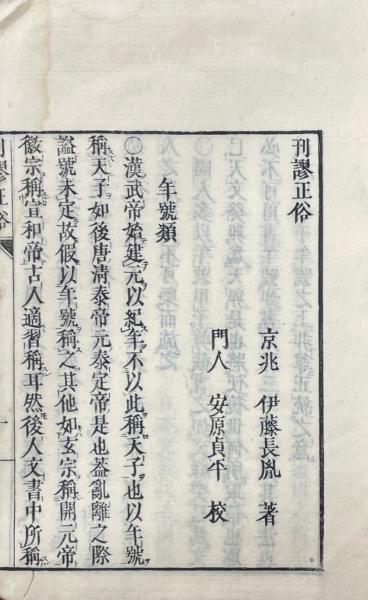 刊謬正俗
京兆 伊藤長胤 著
門人 安原貞平 校
年號類
〇漢武帝始建元以紀年不以此稱天子也以年號
稱天子如後唐清泰帝元泰定帝是也蓋亂離之際
謚號未定故假以年號稱之其他如玄宗稱開元帝
徽宗稱宣和帝古人適習稱耳然後人文書中所稱
刊謬正俗